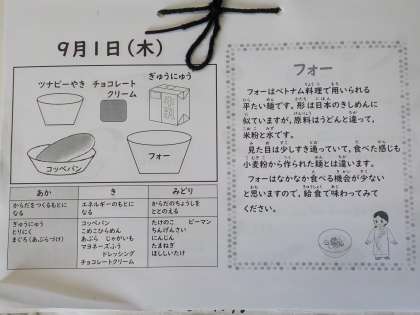 9月1日(木)
ツナビーやき
チョコレート
クリーム
ぎゅうにゅう
牛乳
コッペパン
フォー
あか
き
みどり
からだをつくるもとに
なる
エネルギーのもとに
なる
からだのちょうしを
ととのえる
ぎゅうにゅう
とりにく
まぐろ(あぶらづけ)
コッペパン
こめこひらめん
あぶら じゃがいも
マヨネーズふう
ドレッシング
チョコレートクリーム
たけのこ ピーマン
ちんげんさい
にんじん
たまねぎ
ほししいたけ
フォー
フォーはベトナム料理で用いられる
平たい麺です。形は日本のきしめんに
似ていますが、原料はうどんと違って、
米粉と水です。
見た目は少しすき通っていて、食べた感じも
小麦粉から作られた麺とは違います。
フォーはなかなか食べる機会が少ない
と思いますので、給食で味わってみて
ください。